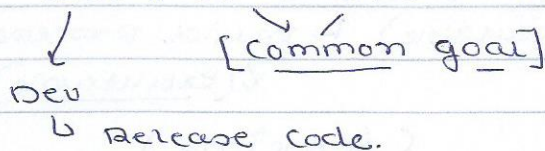 [Common goal]
Dev
↳ Release code.